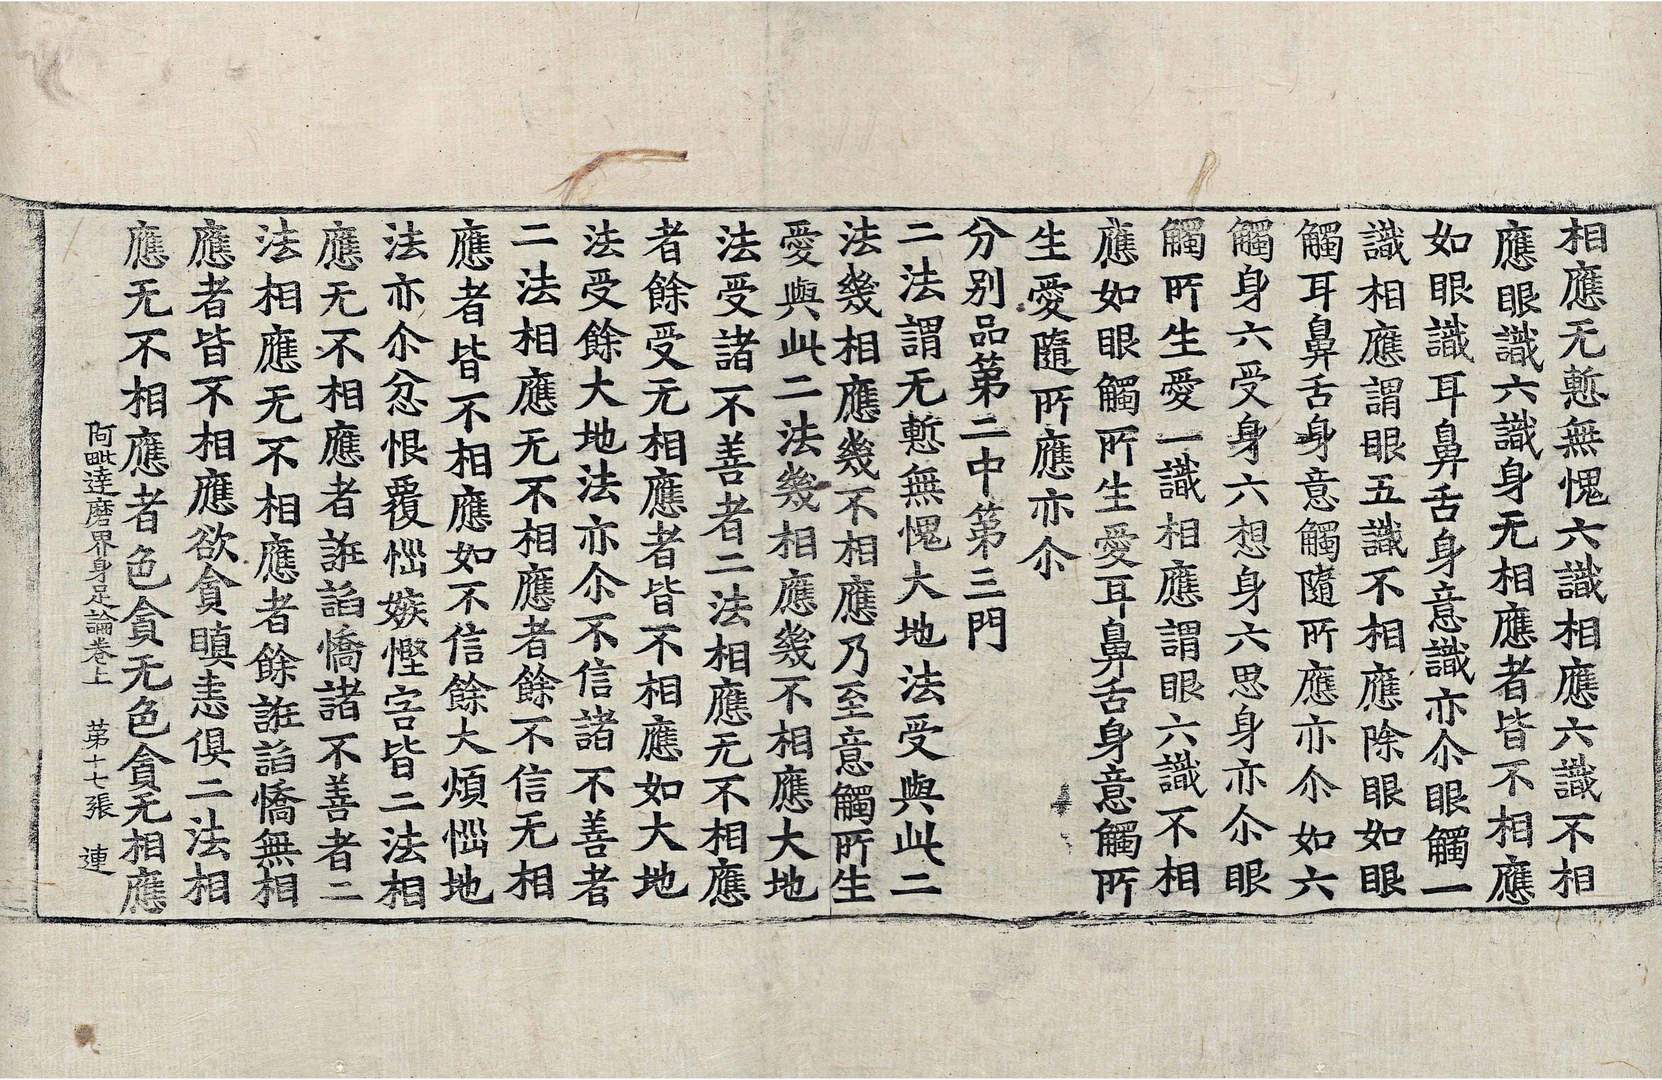 相應无慙無愧六識相應六識不相
應眼識六識身无相應者皆不相應
如眼識耳鼻舌身意識亦尒眼觸一
識相應謂眼五識不相應除眼如眼
觸耳鼻舌身意觸隨所應亦尒如六
觸身六受身六想身六思身亦尒眼
觸所生愛一識相應謂眼六識不相
應如眼觸所生愛耳鼻舌身意觸所
生愛隨所應亦尒
分別品第二中第三門
二法謂无慙無愧大地法受與此二
法幾相應幾不相應乃至意觸所生
愛與此二法幾相應幾不相應大地
法受諸不善者二法相應无不相應
者餘受无相應者皆不相應如大地
法受餘大地法亦尒不信諸不善者
二法相應无不相應者餘不信无相
應者皆不相應如不信餘大煩惱地
法亦尒忿恨覆惱嫉慳害皆二法相
應无不相應者誑諂憍諸不善者二
法相應无不相應者餘誑諂憍無相
應者皆不相應欲貪瞋恚俱二法相
應无不相應者色貪无色貪无相應
阿毗達磨界身足論卷上　第十七張　連